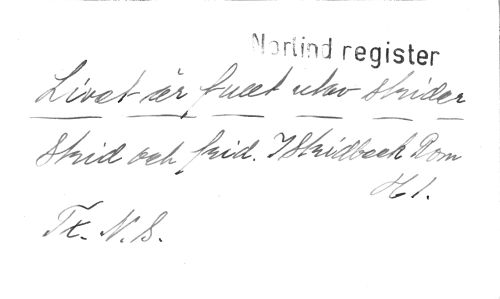 Norlind register
Livet är fullt utav strider
Strid och frid. I Stridbeck Dom
H1.
Tx. N.S.